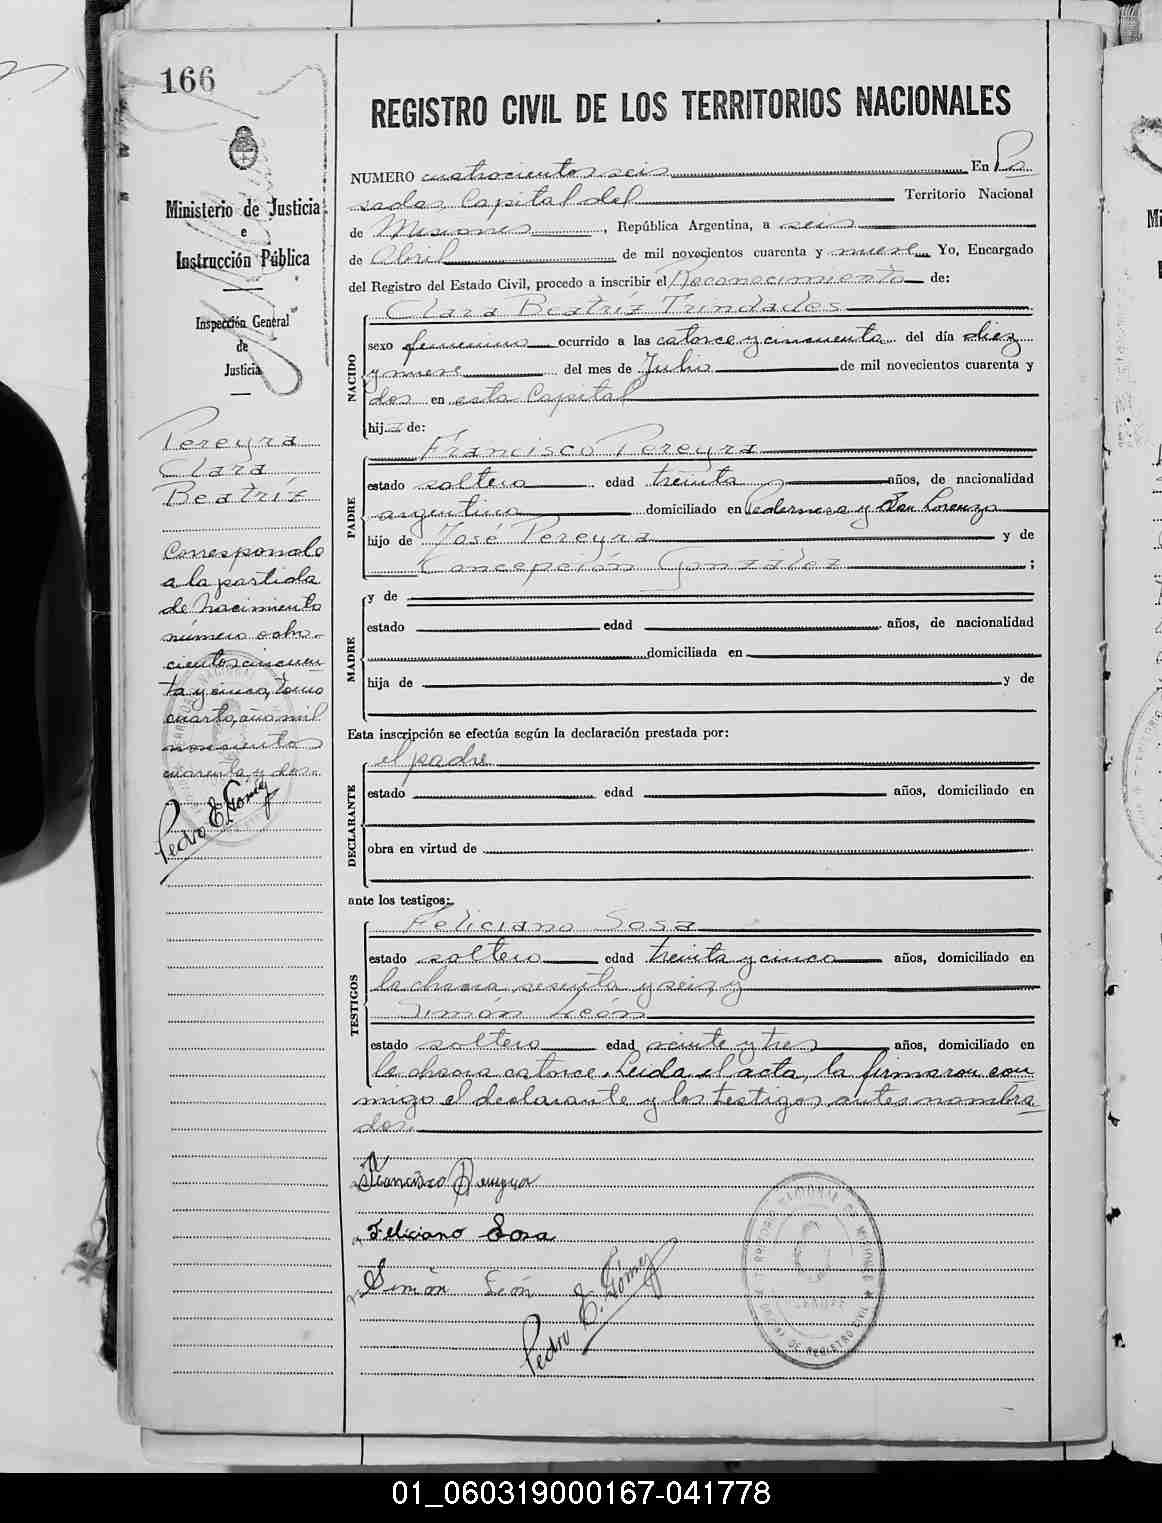 166
Ministerio de Justicia
e
Instrucción Pública
Inspección General
de
Justicia
Pereyra
Clara
Beatríz
Corresponde
a la partida
de nacimiento
número ocho-
cientos cincuen-
ta y cinco, tomo
cuarto, año mil
novecientos
cuarenta y dos.
Pedro E. Gómez
REGISTRO CIVIL DE LOS TERRITORIOS NACIONALES
NUMERO cuatrocientos seis En Po
sadas Capital del Territorio Nacional
de Misiones, República Argentina, a seis
de Abril de mil novecientos cuarenta y nueve Yo, Encargado
del Registro del Estado Civil, procedo a inscribir el Reconocimiento de:
Clara Beatríz Trindades
NACIDO
sexo femenino ocurrido a las catorce y cincuenta del día diez
y nueve del mes de Julio de mil novecientos cuarenta y
dos en esta Capital
hija de:
Francisco Pereyra
PADRE
estado soltero edad treinta años, de nacionalidad
argentino domiciliado en Pedernera y San Lorenzo
hijo de José Pereyra y de
Concepción González ;
MADRE
y de
estado edad años, de nacionalidad
domiciliada en
hija de y de
Esta inscripción se efectúa según la declaración prestada por:
el padre
DECLARANTE
estado edad años, domiciliado en
obra en virtud de
ante los testigos:
Feliciano Sosa
TESTIGOS
estado soltero edad treinta y cinco años, domiciliado en
la chacra sesenta y seis, y
Simón León
estado soltero edad veinte y tres años, domiciliado en
la chacra catorce. Leída el acta, la firmaron con
migo el declarante y los testigos antes nombra
dos.
Francisco Pereyra
Feliciano Sosa
Simón León
Pedro E. Gómez
01_060319000167-041778